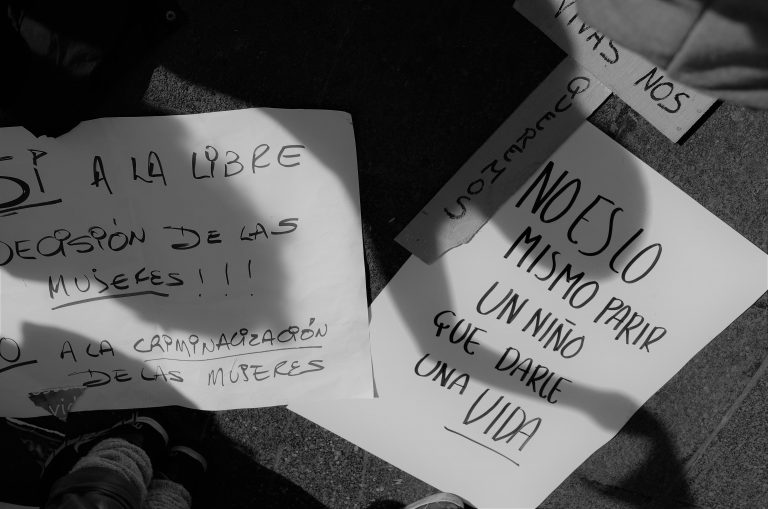 SÍ A LA LIBRE
DECISIÓN DE LAS
MUJERES!!!
NO A LA CRIMINALIZACIÓN
DE LAS MUJERES
VIVAS NOS
QUEREMOS
NO ES LO
MISMO PARIR
UN NIÑO
QUE DARLE
UNA VIDA